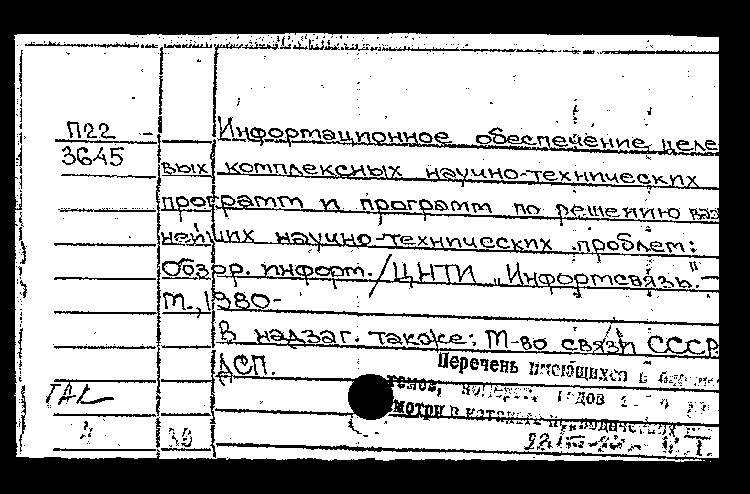 П22 - Информационное обеспечение целе
3645
вых комплексных научно-технических
программ и программ по решению важ
нейших научно-технических проблем:
Обзор. информ./ЦНТИ „Информсвязь".-
М., 1980-
В надзаг. также: М-во связи СССР.
ДСП.
Перечень имеющихся в
томов, годов
смотри в каталоге периодических